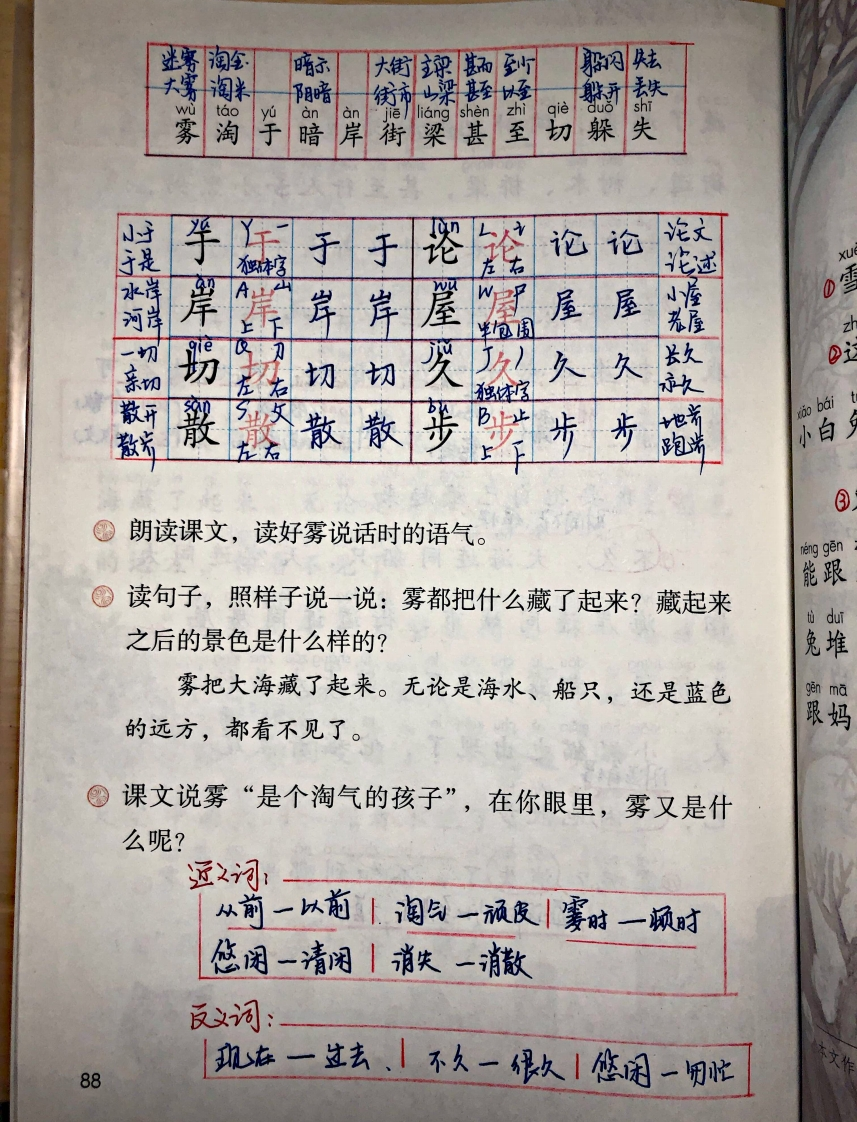 迷雾 淘金 暗示 大街 主梁 甚而 至少 躲闪 失去
大雾 淘米 阴暗 街市 山梁 甚至 以至 躲开 丢失
wù táo yú àn àn jiē liáng shèn zhì qiè duǒ shī
雾 淘 于 暗 岸 街 梁 甚 至 切 躲 失
yú lùn
小于 于 Y 于 一 于 于 论 L 论 讠 论 论 论文
于是 独体字 左 右 论述
àn wū
水岸 岸 A 岸 山 岸 岸 屋 W 屋 尸 屋 屋 小屋
河岸 上 下 半包围 老屋
qiè jiǔ
一切 切 Q 切 刀 切 切 久 J 久 丿 久 久 长久
亲切 左 右 独体字 永久
sàn bù
散开 散 S 散 攵 散 散 步 B 步 止 步 步 地步
散步 左 右 上 下 跑步
朗读课文，读好雾说话时的语气。
读句子，照样子说一说：雾都把什么藏了起来？藏起来
之后的景色是什么样的？
雾把大海藏了起来。无论是海水、船只，还是蓝色
的远方，都看不见了。
课文说雾“是个淘气的孩子”，在你眼里，雾又是什
么呢？
近义词：
从前—以前 淘气—顽皮 霎时—顿时
悠闲—清闲 消失—消散
反义词：
现在—过去、 不久—很久 悠闲—匆忙
88
xuě
① 雪
② 这
xiǎo bái
小 白 兔
③
néng gēn
能 跟
tù duī
兔 堆
gēn mā
跟 妈
本文作